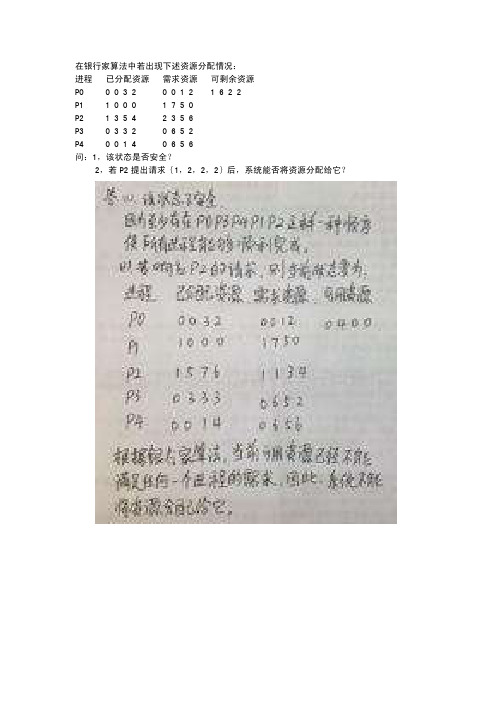 在银行家算法中若出现下述资源分配情况：
进程 已分配资源 需求资源 可剩余资源
P0 0 0 3 2 0 0 1 2 1 6 2 2
P1 1 0 0 0 1 7 5 0
P2 1 3 5 4 2 3 5 6
P3 0 3 3 2 0 6 5 2
P4 0 0 1 4 0 6 5 6
问：1，该状态是否安全？
2，若P2提出请求（1，2，2，2）后，系统能否将资源分配给它？
答(1)，该状态安全
因为至少存在P0P3P4P1P2这样一种顺序
使所有进程能够顺利完成。
(2)若响应P2的请求，则当前状态变为：
进程 已分配资源 需求资源 可用资源
P0 0032 0012 0400
P1 1000 1750
P2 1576 1134
P3 0333 0652
P4 0014 0656
根据银行家算法，当前可用资源已经不能
满足任何一个进程的需求，因此，系统不能
将资源分配给它。